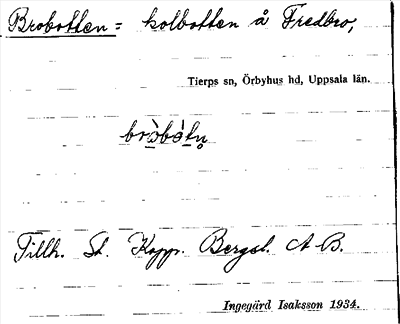 Brobotten = kolbotten å Fredbro,
Tierps sn, Örbyhus hd, Uppsala län.
Tillh. St. Kopp. Bergsl. A-B.
Ingegärd Isaksson 1934.